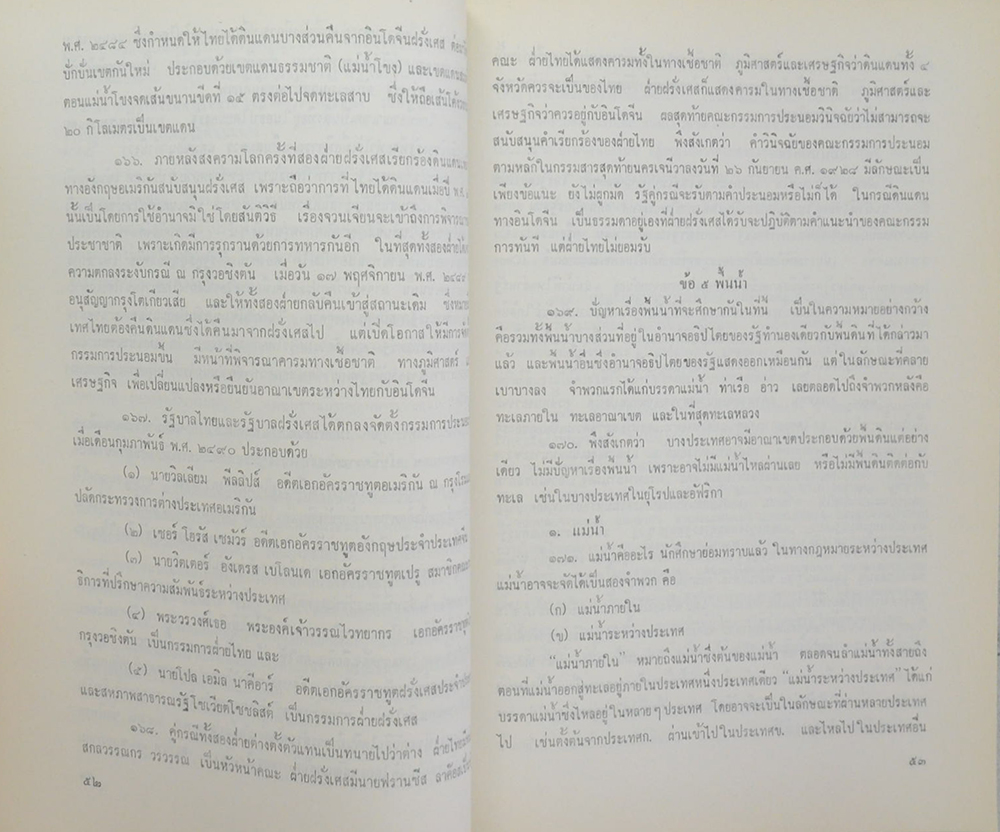 พ.ศ. ๒๔๘๔ ซึ่งกำหนดให้ไทยได้ดินแดนบางส่วนคืนจากอินโดจีนฝรั่งเศส
ปักปันเขตกันใหม่ ประกอบด้วยเขตแดนธรรมชาติ (แม่น้ำโขง) และเขตแดน
ตอนแม่น้ำโขงจดเส้นขนานขีดที่ ๑๕ ตรงต่อไปจดทะเลสาบ ซึ่งให้ถือเส้น
๒๐ กิโลเมตรเป็นเขตแดน
๑๖๖. ภายหลังสงครามโลกครั้งที่สองฝ่ายฝรั่งเศสเรียกร้องดินแดน
ทางอังกฤษอเมริกันสนับสนุนฝรั่งเศส เพราะถือว่าการที่ไทยได้ดินแดนเมื่อปี
นั้นเป็นโดยการใช้อำนาจมิใช่โดยสันติวิธี เรื่องจวนเจียนจะเข้าถึงการ
ประชาชาติ เพราะเกิดมีการรุกรานด้วยการทหารกันอีก ในที่สุดทั้งสองฝ่าย
ความตกลงระงับกรณี ณ กรุงวอชิงตัน เมื่อวัน ๑๗ พฤศจิกายน พ.ศ. ๒๔๘๙
อนุสัญญากรุงโตเกียวเสีย และให้ทั้งสองฝ่ายกลับคืนเข้าสู่สถานะเดิม
เทศไทยต้องคืนดินแดนซึ่งได้คืนมาจากฝรั่งเศสไป แต่เปิดโอกาสให้มีการ
กรรมการประนอมขึ้น มีหน้าที่พิจารณาคารมทางเชื้อชาติ ทางภูมิศาสตร์
เศรษฐกิจ เพื่อเปลี่ยนแปลงหรือยืนยันอาณาเขตระหว่างไทยกับอินโดจีน
๑๖๗. รัฐบาลไทยและรัฐบาลฝรั่งเศสได้ตกลงจัดตั้งกรรมการ
เมื่อเดือนกุมภาพันธ์ พ.ศ. ๒๔๙๐ ประกอบด้วย
(๑) นายวิลเลียม ฟิลลิปส์ อดีตเอกอัครราชทูตอเมริกัน ณ
ปลัดกระทรวงการต่างประเทศอเมริกัน
(๒) เซอร์ โฮรัส เซมัวร์ อดีตเอกอัครราชทูตอังกฤษประจำประเทศ
(๓) นายวิตเตอร์ อังเดรส เบโลนเด เอกอัครราชทูตเปรู สมาชิก
ธิการที่ปรึกษาความสัมพันธ์ระหว่างประเทศ
(๔) พระวรวงศ์เธอ พระองค์เจ้าวรรณไวทยากร
กรุงวอชิงตัน เป็นกรรมการฝ่ายไทย และ
(๕) นายโปล เอมิล นาคีอาร์ อดีตเอกอัครราชทูตฝรั่งเศสประจำ
และสหภาพสาธารณรัฐโซเวียตโซชลิสต์ เป็นกรรมการฝ่ายฝรั่งเศส
๑๖๘. คู่กรณีทั้งสองฝ่ายต่างตั้งตัวแทนเป็นทนายไปว่าต่าง
สกลวรรณกร วรวรรณ เป็นหัวหน้าคณะ ฝ่ายฝรั่งเศสมีนายฟรานซีส
๕๒
คณะ ฝ่ายไทยได้แสดงคารมทั้งในทางเชื้อชาติ ภูมิศาสตร์และเศรษฐกิจว่าดินแดนทั้ง ๔
จังหวัดควรจะเป็นของไทย ฝ่ายฝรั่งเศสก็แสดงคารมในทางเชื้อชาติ ภูมิศาสตร์และ
เศรษฐกิจว่าควรอยู่กับอินโดจีน ผลสุดท้ายคณะกรรมการประนอมวินิจฉัยว่าไม่สามารถจะ
สนับสนุนคำเรียกร้องของฝ่ายไทย พึงสังเกตว่า คำวินิจฉัยของคณะกรรมการประนอม
ตามหลักในกรรมสารสุดท้ายนครเจนีวาลงวันที่ ๒๖ กันยายน ค.ศ. ๑๙๒๘ มีลักษณะเป็น
เพียงข้อแนะ ยังไม่ผูกมัด รัฐคู่กรณีจะรับตามคำประนอมหรือไม่ก็ได้ ในกรณีดินแดน
ทางอินโดจีน เป็นธรรมดาอยู่เองที่ฝ่ายฝรั่งเศสได้รับจะปฏิบัติตามคำแนะนำของคณะกรรม
การทันที แต่ฝ่ายไทยไม่ยอมรับ
ข้อ ๕ พื้นน้ำ
๑๖๙. ปัญหาเรื่องพื้นน้ำที่จะศึกษากันในที่นี้ เป็นในความหมายอย่างกว้าง
คือรวมทั้งพื้นน้ำบางส่วนที่อยู่ในอำนาจอธิปไตยของรัฐทำนองเดียวกับพื้นดินที่ได้กล่าวมา
แล้ว และพื้นน้ำอื่นซึ่งอำนาจอธิปไตยของรัฐแสดงออกเหมือนกัน แต่ในลักษณะที่คลาย
เบาบางลง จำพวกแรกได้แก่บรรดาแม่น้ำ ท่าเรือ อ่าว เลยตลอดไปถึงจำพวกหลังคือ
ทะเลภายใน ทะเลอาณาเขต และในที่สุดทะเลหลวง
๑๗๐. พึงสังเกตว่า บางประเทศอาจมีอาณาเขตประกอบด้วยพื้นดินแต่อย่าง
เดียว ไม่มีปัญหาเรื่องพื้นน้ำ เพราะอาจไม่มีแม่น้ำไหลผ่านเลย หรือไม่มีพื้นดินติดต่อกับ
ทะเล เช่นในบางประเทศในยุโรปและอัฟริกา
๑. แม่น้ำ
๑๗๑. แม่น้ำคืออะไร นักศึกษาย่อมทราบแล้ว ในทางกฎหมายระหว่างประเทศ
แม่น้ำอาจจะจัดได้เป็นสองจำพวก คือ
(ก) แม่น้ำภายใน
(ข) แม่น้ำระหว่างประเทศ
"แม่น้ำภายใน" หมายถึงแม่น้ำซึ่งต้นของแม่น้ำ ตลอดจนลำแม่น้ำทั้งสายถึง
ตอนที่แม่น้ำออกสู่ทะเลอยู่ภายในประเทศหนึ่งประเทศเดียว "แม่น้ำระหว่างประเทศ" ได้แก่
บรรดาแม่น้ำซึ่งไหลอยู่ในหลายๆ ประเทศ โดยอาจจะเป็นในลักษณะที่ผ่านหลายประเทศ
ไป เช่นตั้งต้นจากประเทศก. ผ่านเข้าไปในประเทศข. และไหลไปในประเทศอื่น
๕๓